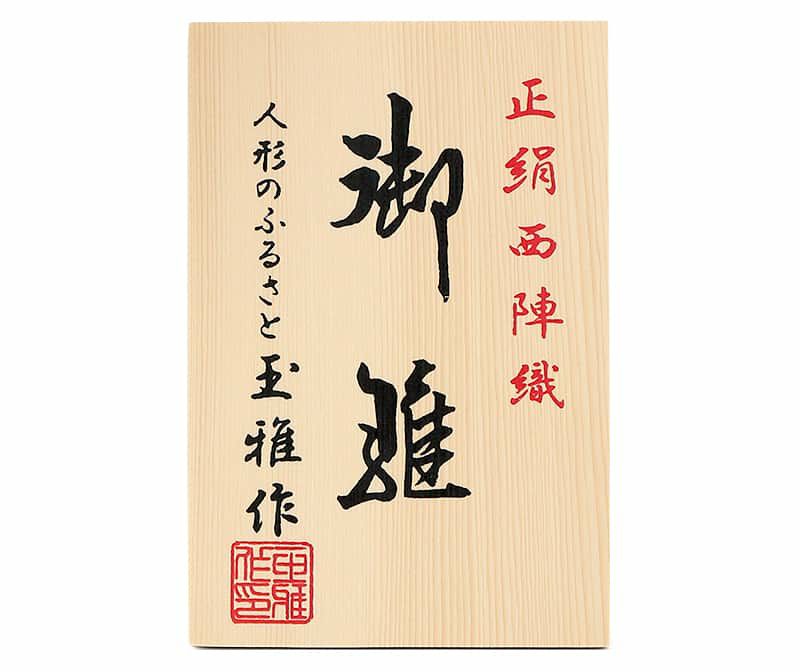 正絹西陣織
御雛
人形のふるさと玉雅作
玉雅作印